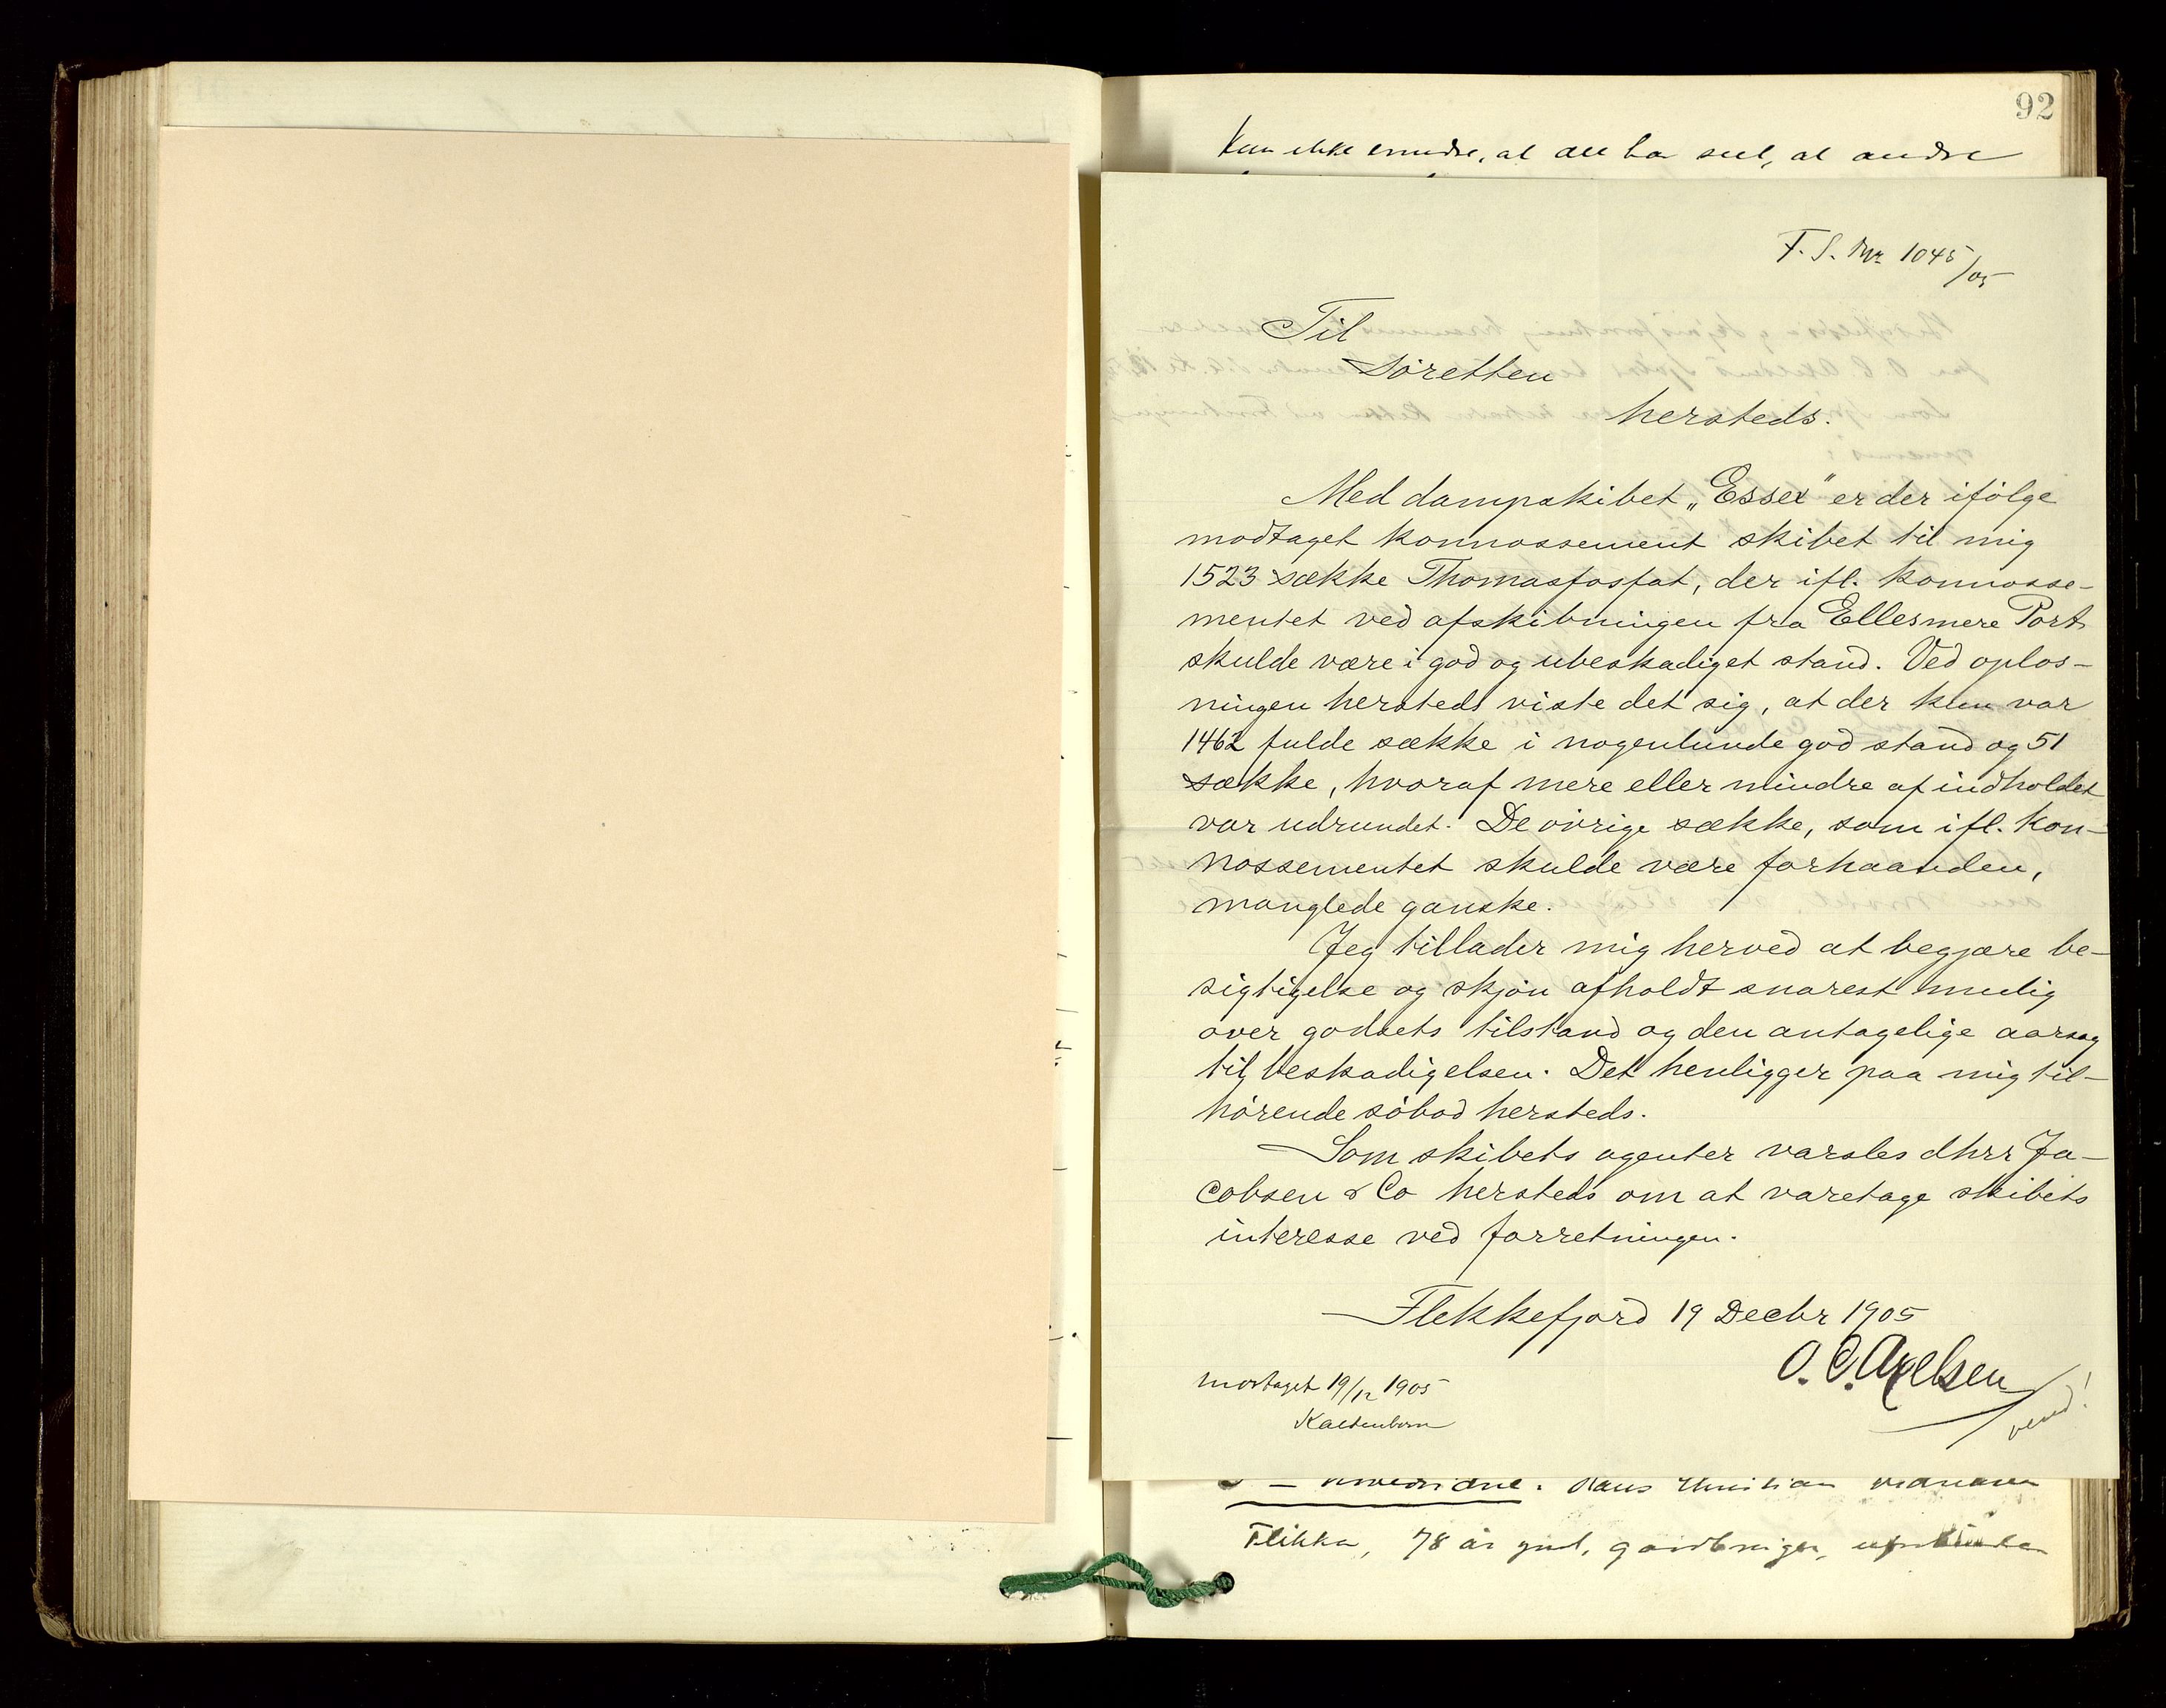 92
Kan ikke erindre, at  har set, at andre
F. S. Nr 1045/05
Til
Söretten
hersteds.
Med dampskibet „Essex" er der ifölge
modtaget konnossement skibet til mig
1523 sække Thomasfosfat, der ifl. konnosse-
mentet ved afskibningen fra Ellesmere Port
skulde være i god og ubeskadiget stand. Ved oplos-
ningen hersteds viste det sig, at der kun var
1462 fulde sække i nogenlunde god stand og 51
sække, hvoraf mere eller mindre af indholdet
var udrundet. De övrige sække, som ifl. kon-
nossementet skulde være forhaanden,
manglede ganske.
Jeg tillader mig herved at begjære be-
sigtigelse og skjön afholdt snarest mulig
over godsets tilstand og den antagelige aarsag
til beskadigelsen. Det henligger paa mig til-
hörende söbod hersteds.
Som skibets agenter varsles dhrr Ja-
cobsen & Co hersteds om at varetage skibets
interesse ved forretningen.
Flekkefjord 19 Decbr 1905
O. C. Axelsen
vend!
Modtaget 19/12 1905
Kaltenborn
Hans Christian
Flikka, 78 år gml, gårdbruger,